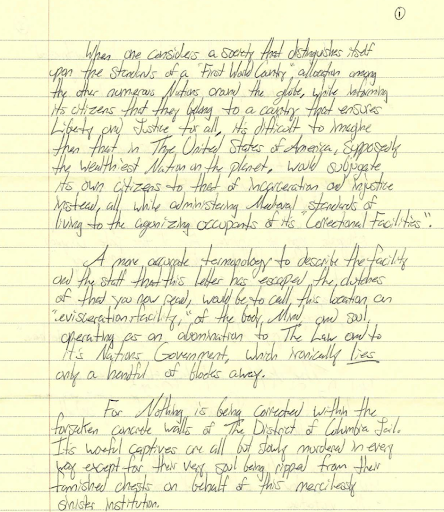 1
When one considers a society that distinguishes itself
upon the standards of a "First World Country", allocation among
the other numerous Nations around the globe, while informing
its citizens that they belong to a country that ensures
Liberty and Justice for all, its difficult to imagine
than that in The United States of America, supposedly
the Wealthiest Nation on the planet, would subjugate
its own citizens to that of incarceration and injustice
instead, all while administering Medieval standards of
living to the agonizing occupants of its "Correctional Facilities".
A more accurate termanology to describe the facility
and the staff that this letter has escaped the clutches
of that you now read, would be to call, this location an
"evisceration facility," of the body, Mind, and soul,
operating as an abomination to The Law and to
It's Nations Government, which ironically lies
only a handful of blocks away.
For Nothing is being corrected within the
forsaken concrete walls of The District of Columbia Jail.
It's woeful captives are all but slowly murdered in every
way except for their very soul being ripped from their
famished chests on behalf of this mercilessly
sinister institution.